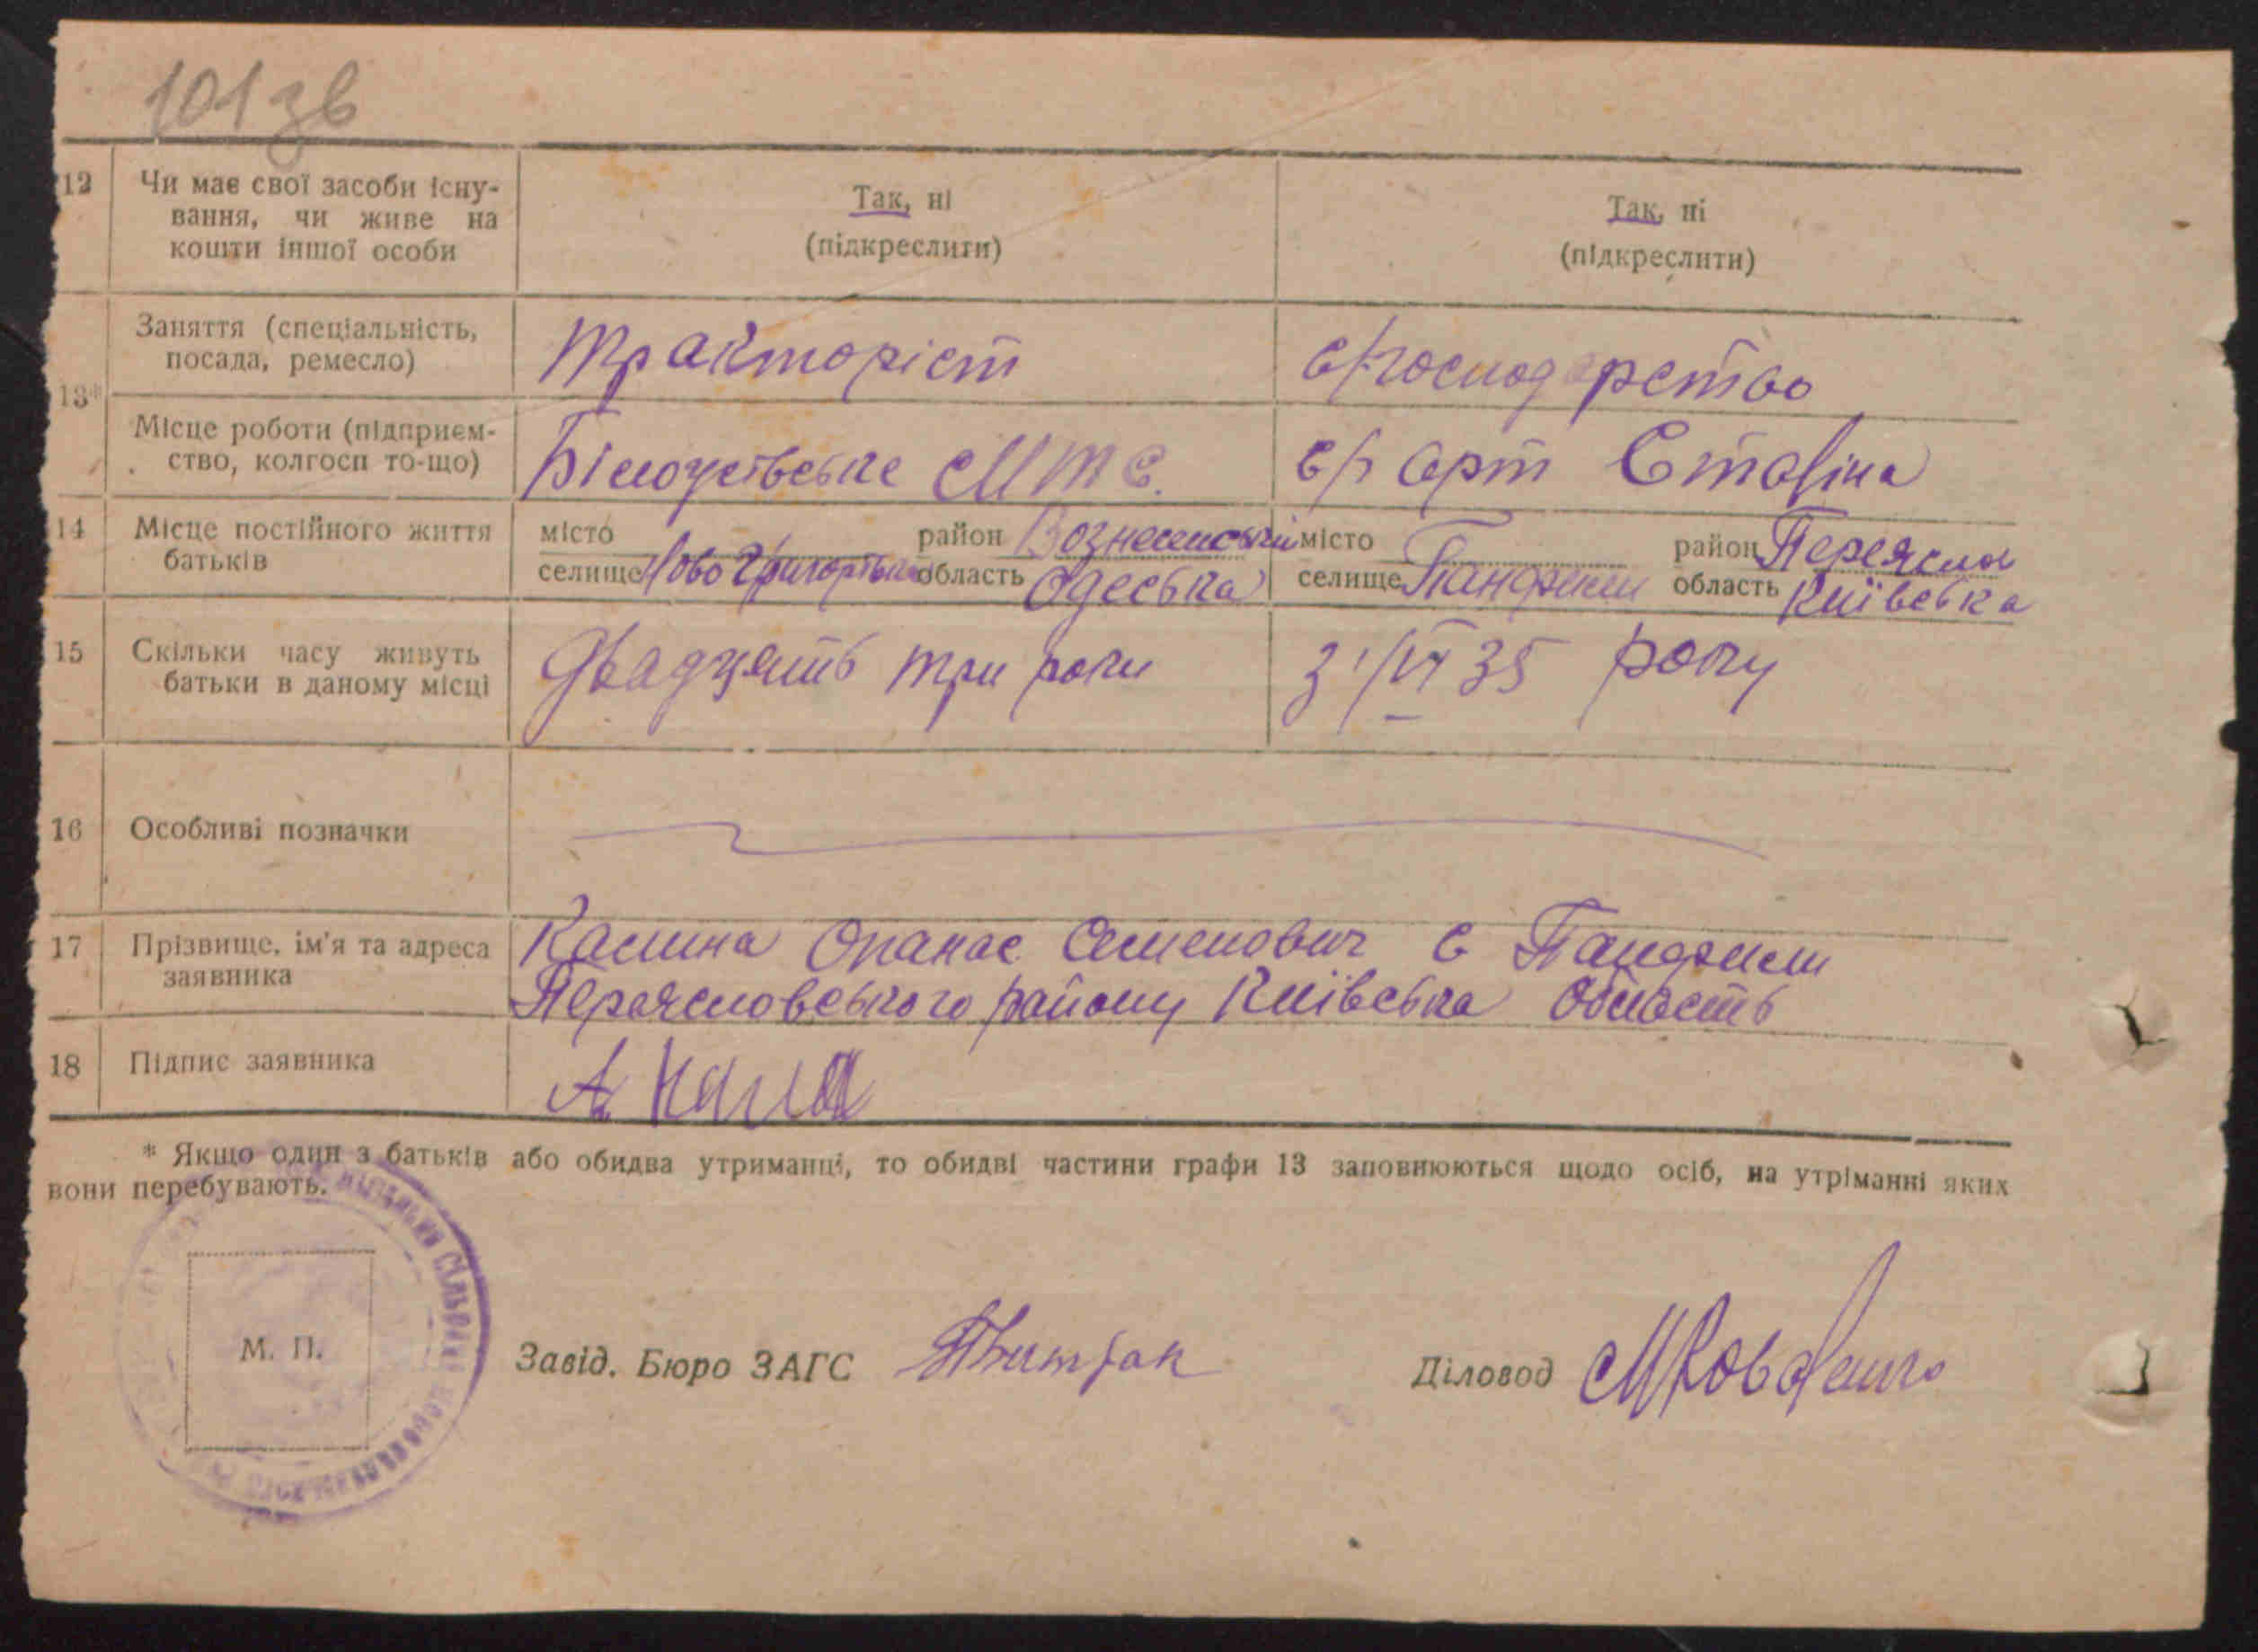 101 зв
12 Чи має свої засоби існу-
вання, чи живе на
кошти іншої особи
Так, ні
(підкреслити)
Так, ні
(підкреслити)
13*
Заняття (спеціальність,
посада, ремесло)
Тракторіст
с/господарство
Місце роботи (підприєм-
ство, колгосп то-що)
МТС.
с/г арт Сталіна
14 Місце постійного життя
батьків
місто
селище Ново Григорівка
район Вознесенський
область Одеська
місто
селище Панфили
район Переяслав
область Київська
15 Скільки часу живуть
батьки в даному місці
Двадцять три роки
З 1/VI 35 року
16 Особливі позначки
17 Прізвище, ім'я та адреса
заявника
Калина Опанас Семенович с Панфили
Переясловського району Київська Область
18 Підпис заявника
А Кали
* Якщо один з батьків або обидва утриманці, то обидві частини графи 13 заповнюються щодо осіб, на утріманні яких
вони перебувають.
М. П.
Завід. Бюро ЗАГС
Діловод МКоваленко